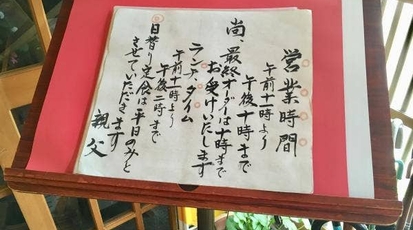 営業時間
午前十一時より
午後十時まで
尚、最終オーダーは十時まで
お受けいたします
ランチ、タイム
午前十一時より
午後二時まで
日替り定食は平日のみと
させていただきます
親父